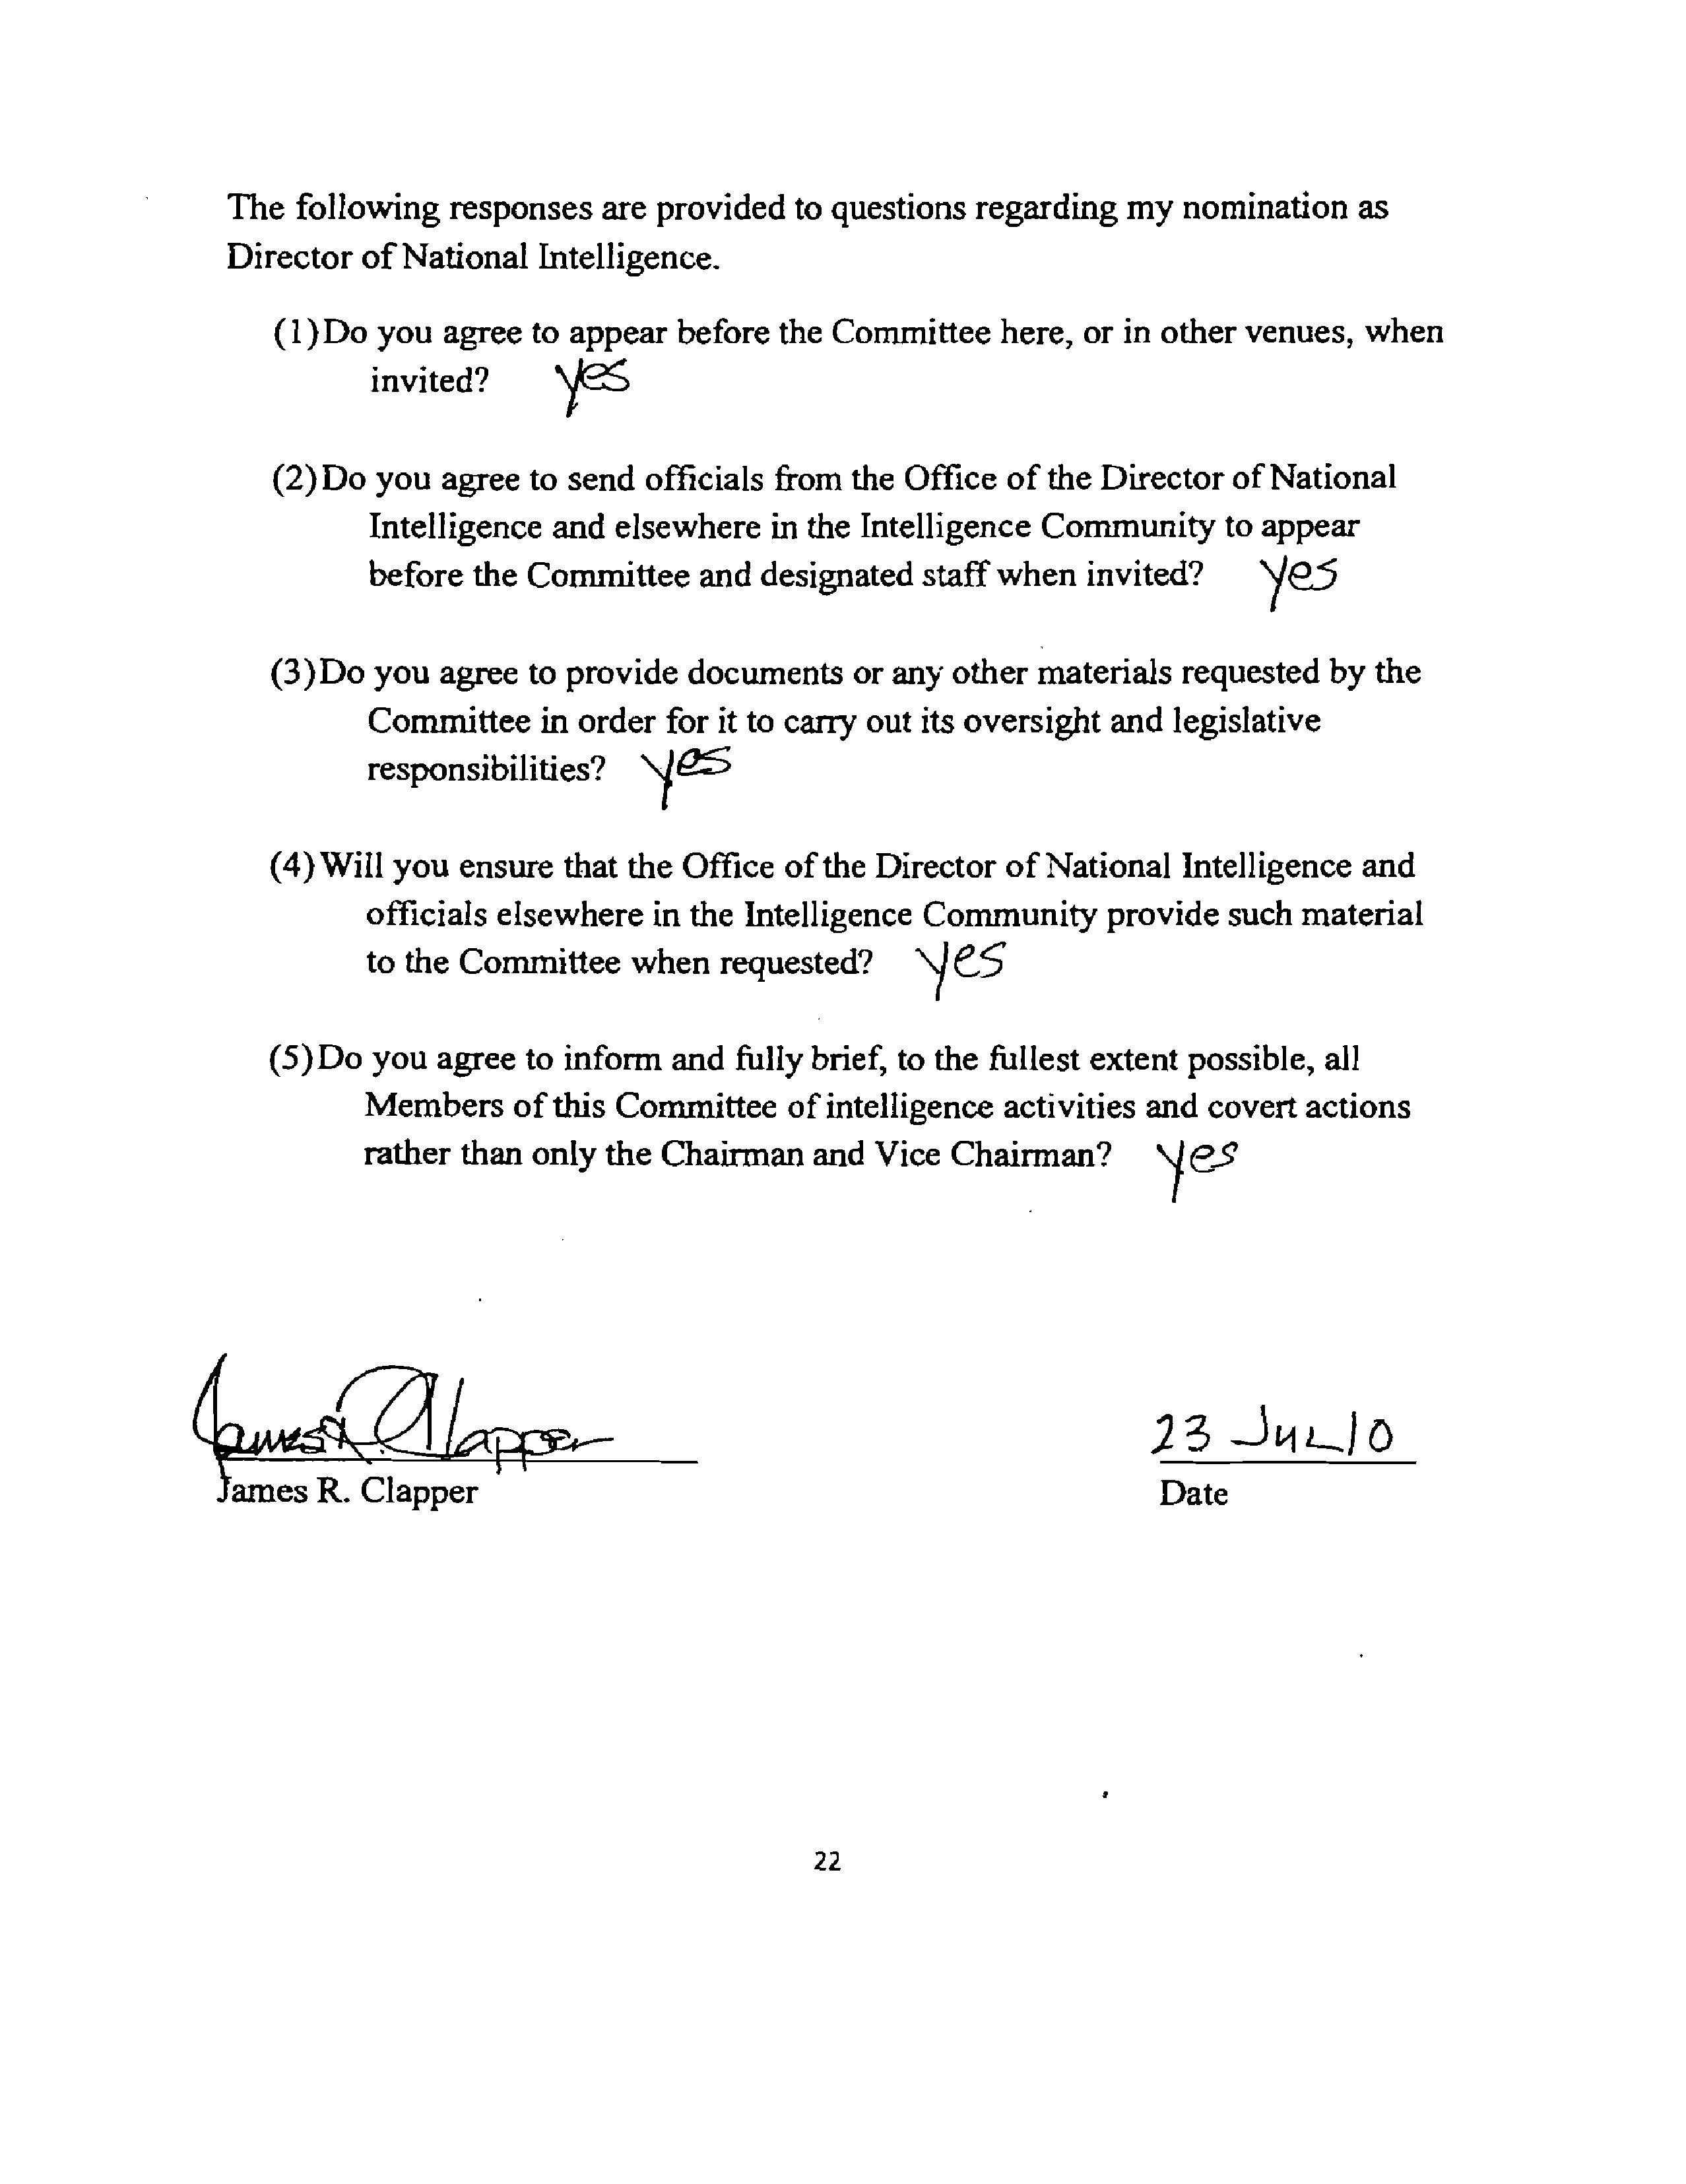 The following responses are provided to questions regarding my nomination as
Director of National Intelligence.
(1) Do you agree to appear before the Committee here, or in other venues, when
invited? yes
(2) Do you agree to send officials from the Office of the Director of National
Intelligence and elsewhere in the Intelligence Community to appear
before the Committee and designated staff when invited? yes
(3) Do you agree to provide documents or any other materials requested by the
Committee in order for it to carry out its oversight and legislative
responsibilities? yes
(4) Will you ensure that the Office of the Director of National Intelligence and
officials elsewhere in the Intelligence Community provide such material
to the Committee when requested? yes
(5) Do you agree to inform and fully brief, to the fullest extent possible, all
Members of this Committee of intelligence activities and covert actions
rather than only the Chairman and Vice Chairman? yes
James R Clapper 23 JUL 10
James R. Clapper Date
22